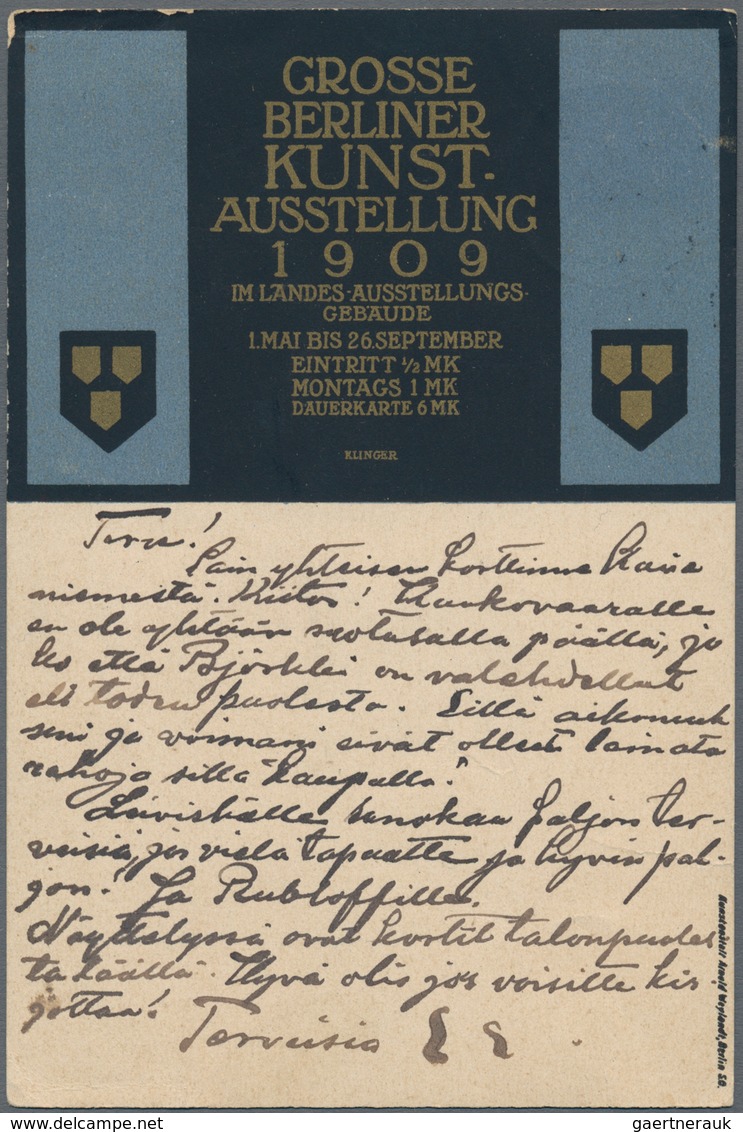 GROSSE
BERLINER
KUNST-
AUSSTELLUNG
1909
IM LANDES-AUSSTELLUNGS-
GEBÄUDE
1. MAI BIS 26. SEPTEMBER
EINTRITT ½ MK
MONTAGS 1 MK
DAUERKARTE 6 MK
KLINGER
Terve!
Sain yhteisen korttinne
niemestä. Kiitos! Haukovaaralle
en ole yhtään suotusalla päällä, jo
ko että on valehdellut
eli toden puolesta. Sillä aikomuk
seni ja voimani eivät olleet lainata
rahoja sillä kaupalla!
sanokaa paljon ter-
veisiä, jos vielä tapaatte ja hyvin pal-
jon! Ja Rubloffille.
Näyttelyssä ovat kortit talonpuoles
ta täällä. Hyvä olis jos voisitte kir-
jottaa!
Terveisiä
Kunstanstalt Arnold Weylandt, Berlin S.O.
gaertnerauk